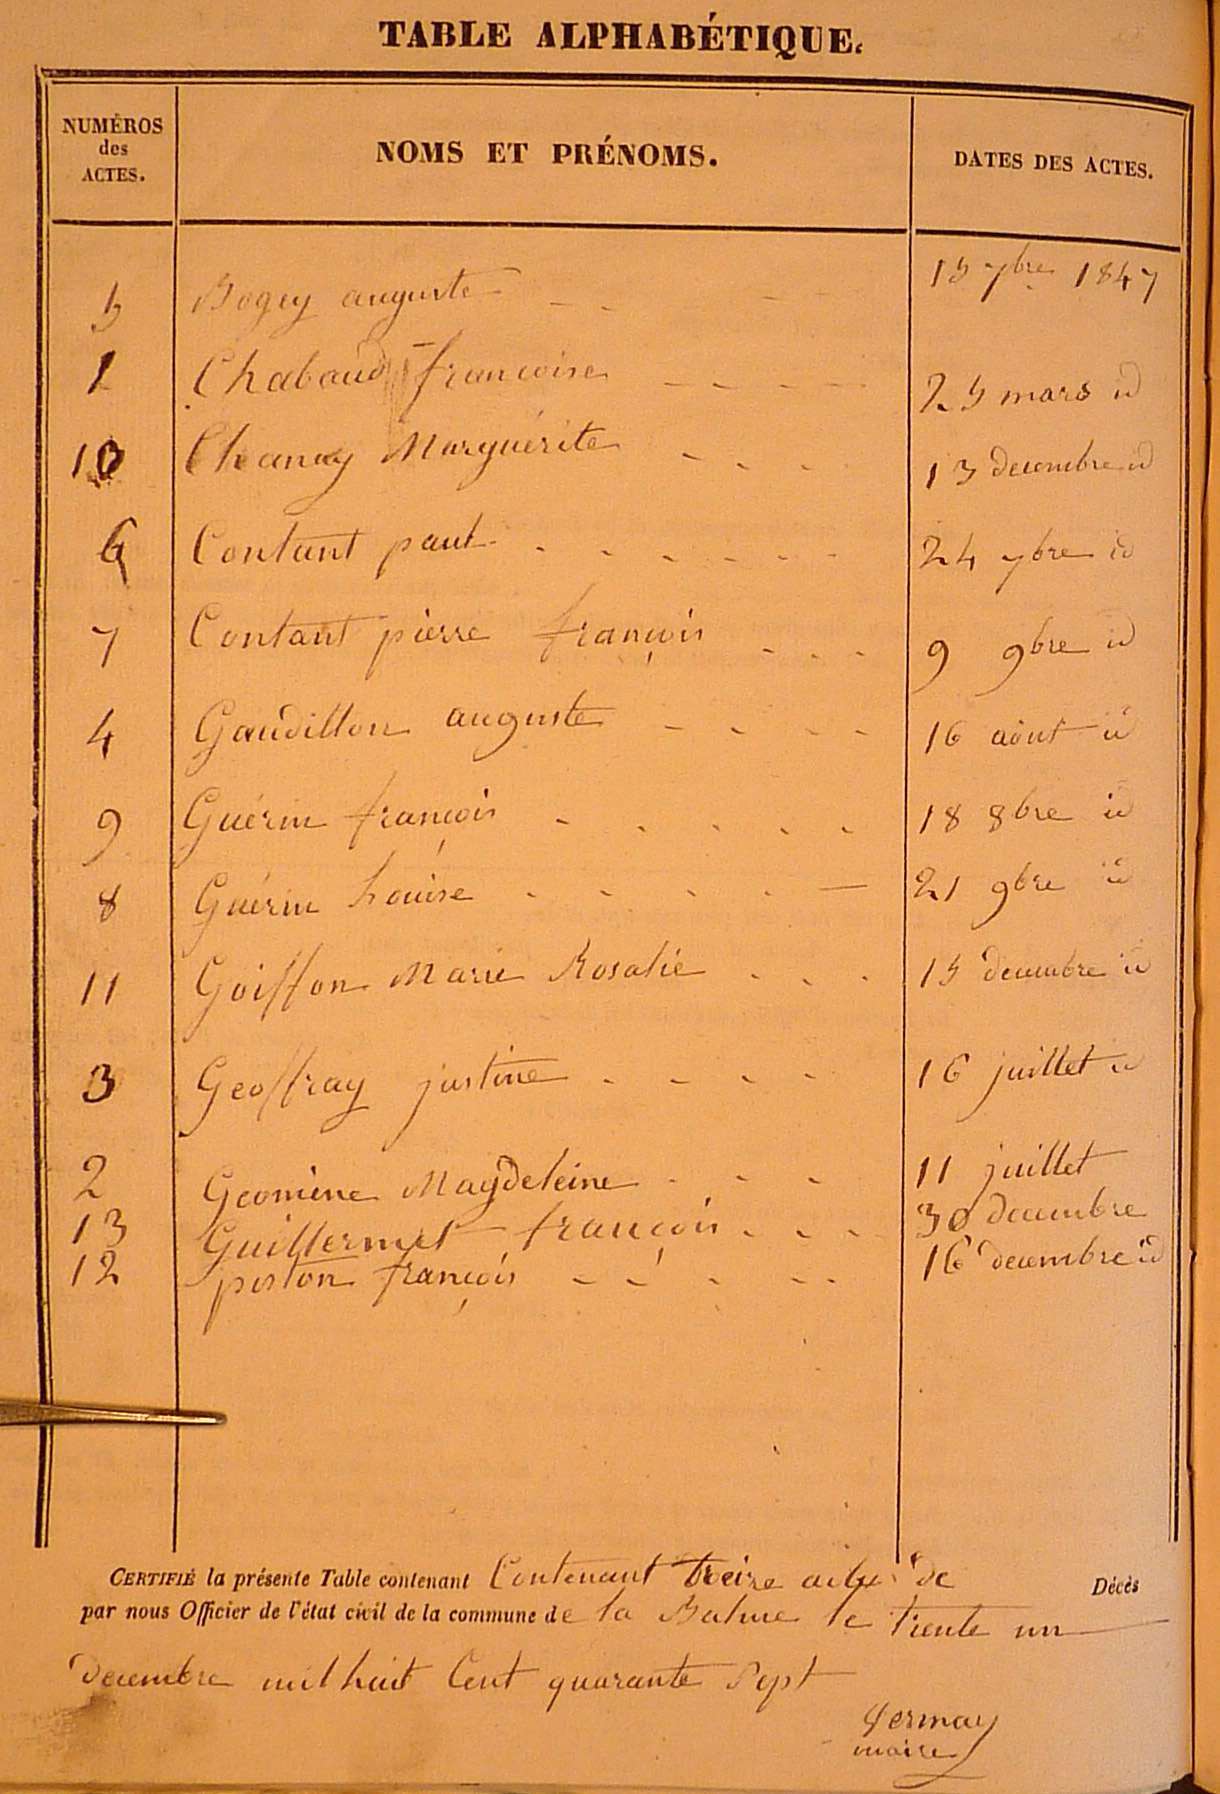 TABLE ALPHABÉTIQUE.
NUMÉROS des ACTES. NOMS ET PRÉNOMS. DATES DES ACTES.
5 Bogey auguste 15 7bre 1847
1 Chabaud françoise 25 mars id
10 Chanay Marguérite 13 decembre id
6 Contant paul 24 7bre id
7 Contant pierre françois 9 9bre id
4 Gaudillon auguste 16 août id
9 Guérin françois 18 8bre id
8 Guérin Louise 21 9bre id
11 Goiffon Marie Rosalie 15 decembre id
3 Geoffray justine 16 juillet id
2 Magdeleine 11 juillet
13 Guillermet françois 30 decembre
12 piston françois 16 decembre id
CERTIFIÉ la présente Table contenant Contenant treize actes de Décès
par nous Officier de l'état civil de la commune de la Balme le trente un
decembre mil huit Cent quarante Sept
maire